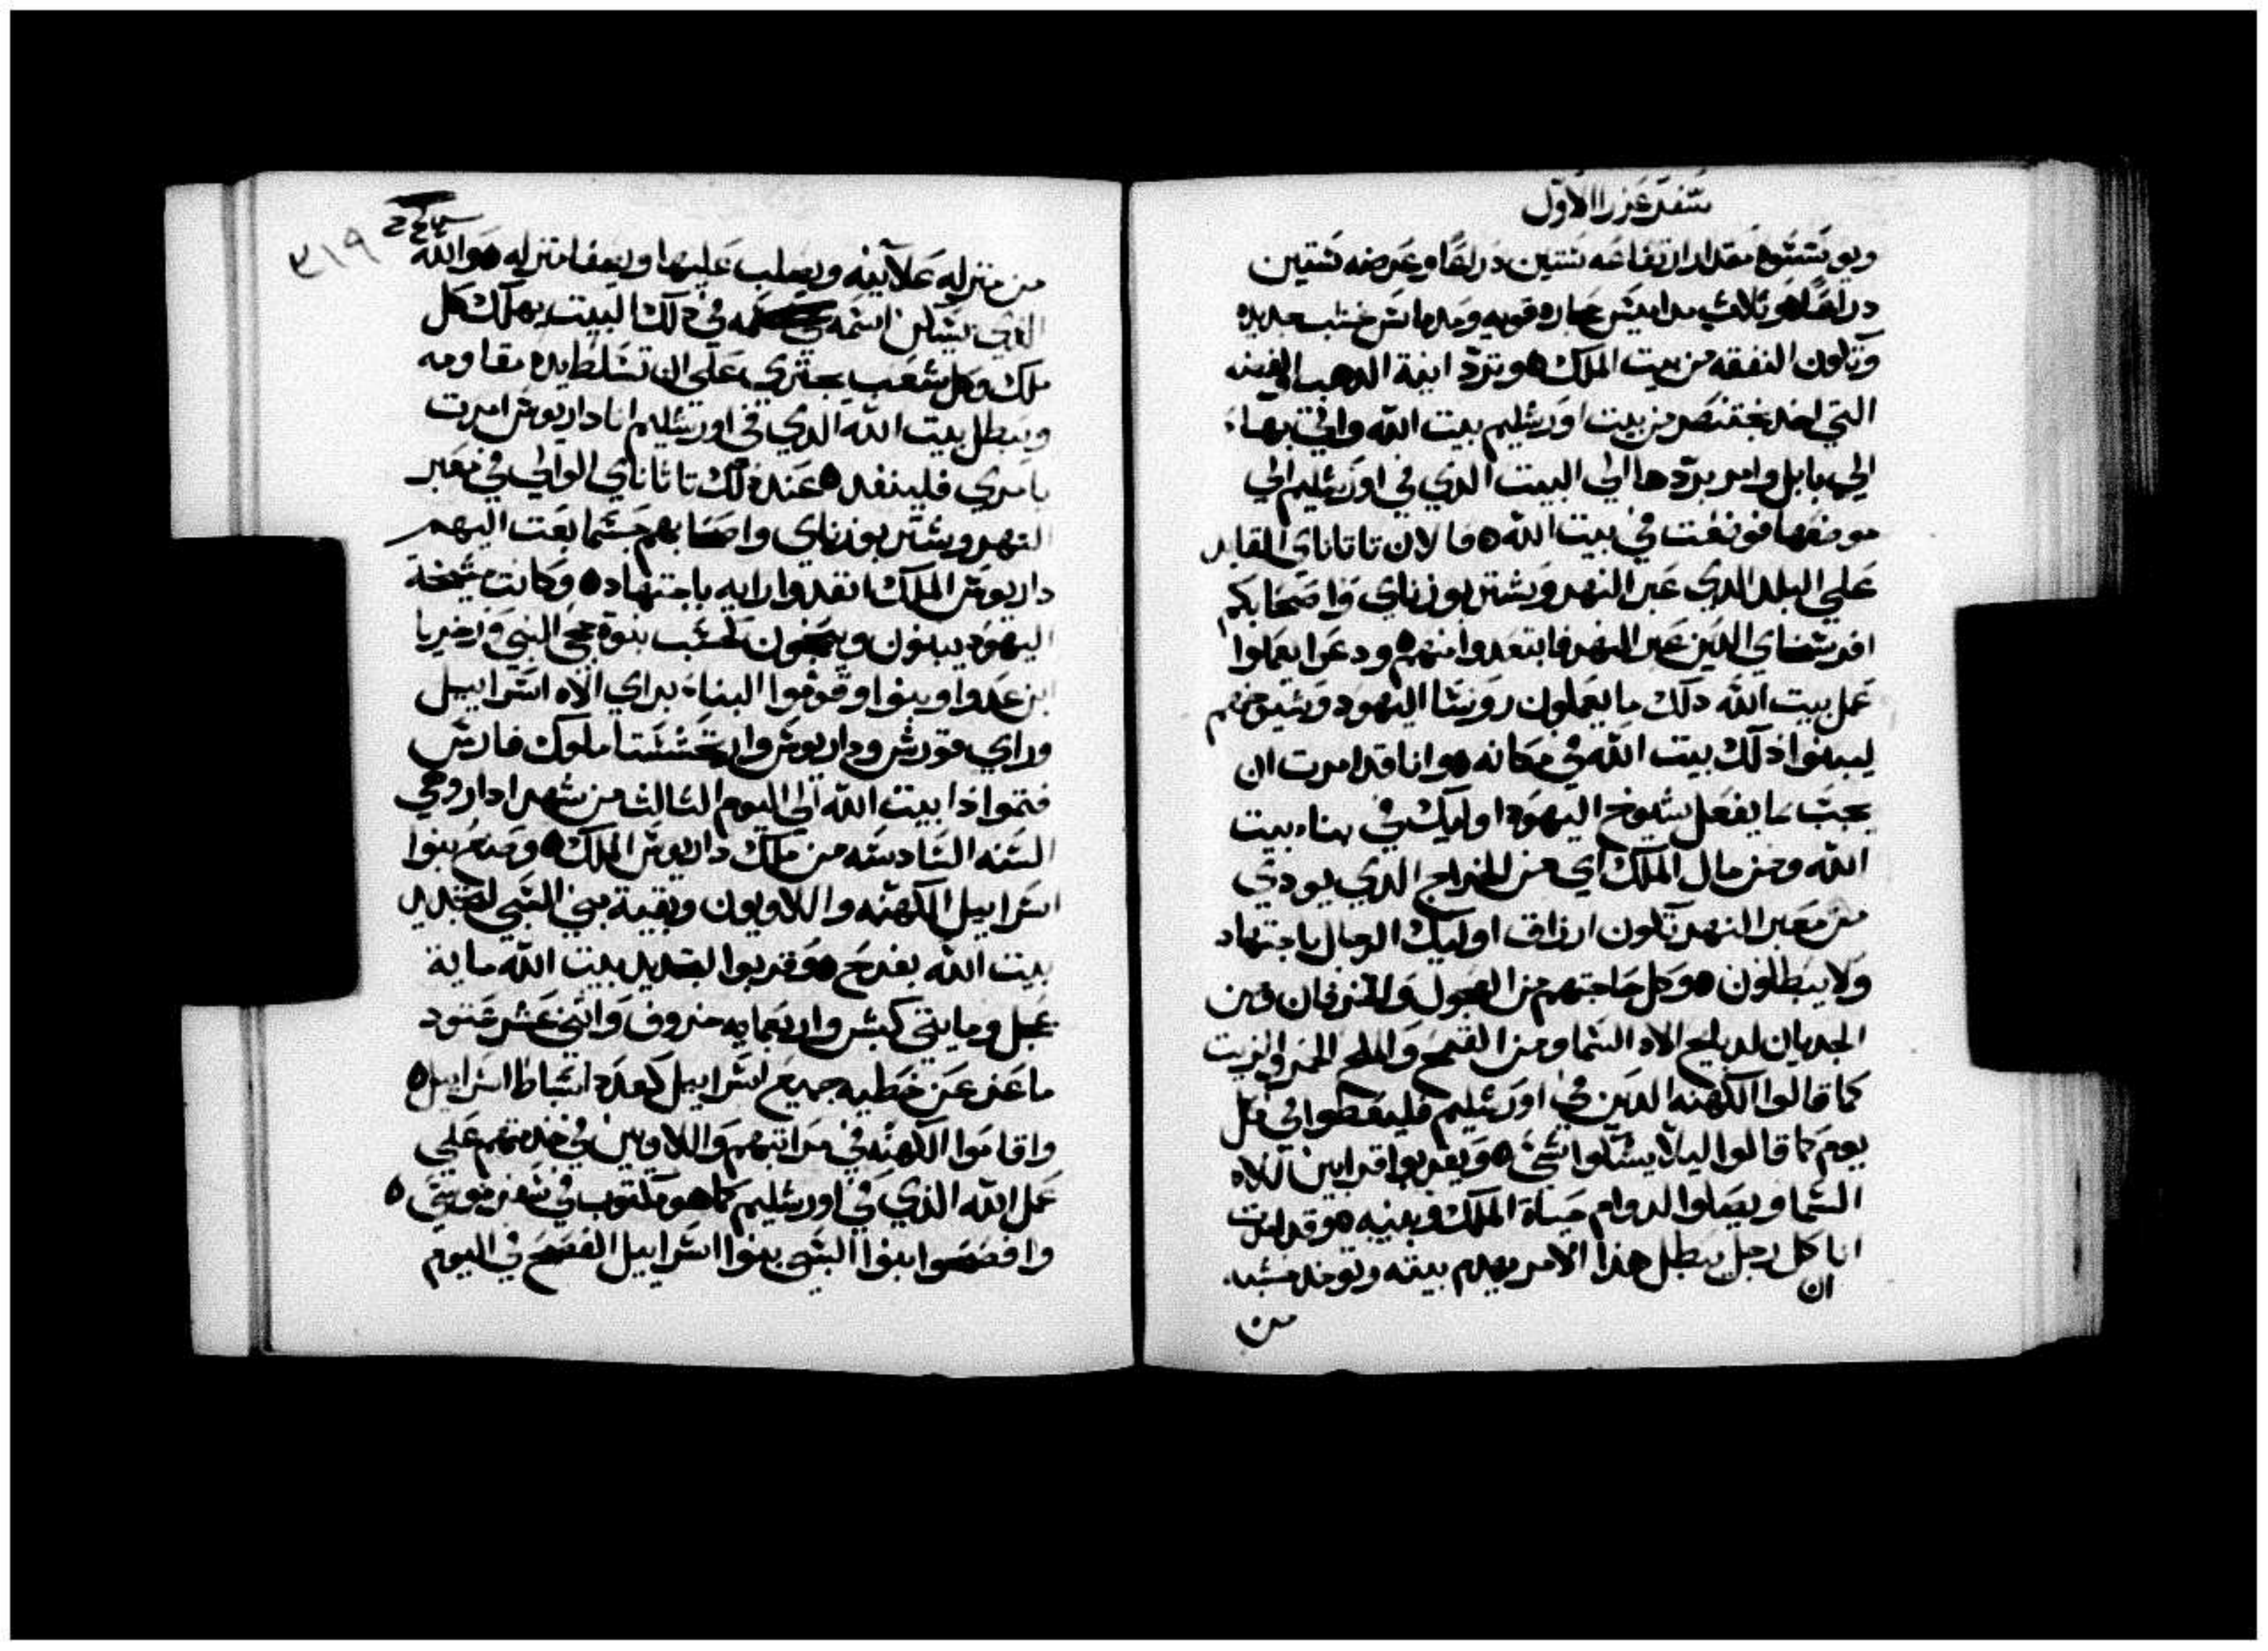 سفر عزرا الاول
ويوسسوه مقدار ارتفاعه ستين دراعًا وعرضه ستين
دراعًا ه وثلاث مداميس حجاره قويه ومدماس خشب جديده
وتكون النفقه من بيت الملك ه وترد انية الدهب والفضه
التي اخد بختنصر من بيت اورشليم بيت الله واتي بها
الي بابل وامر بردها الي البيت الدي في اورشليم الي
موضعها فوضعت في بيت الله ه فالان تاتاناي القايد
علي البلد الدي عبر النهر وبشتر بوزناي واصحابكم
افرسخاي الدين عبر النهر فابتعدوا منهم ه ودعوا يعملوا
عمل بيت الله دلك ما يعملون روسا اليهود وشيوخهم
ليبنوا دلك بيت الله في مكانه ه وانا قد امرت ان
يجب ما يفعل شيوخ اليهود اوليك في بناء بيت
الله ومن مال الملك اي من الخراج الدي يودي
من معبر النهر تكون ارزاق اوليك الرجال باجتهاد
ولا يبطلون ه وكل حاجتهم من العجول والخرفان ومن
الجديان لدبايح الاه السما ومن القمح والملح الخمر والزيت
كما قالوا الكهنه الدين في اورشليم فليعطوا في كل
يوم كما قالوا ليلا يسكوا شي ه ويقربوا قرابين للاه
السما ويصلوا لدوام حياة الملك وبنيه ه وقد امرت
انا كل رجل يبطل هذا الامر يهدم بيته وتوخد خشبه
ان
من
٣١٩
من منزله علانيه ويصلب عليها ويعفا منزله ه والله
الدي يسكن اسمه في دلك البيت يهلك كل
ملك وكل شعب يجتري علي ان تسلط يده مقاومه
ويبطل بيت الله الدي في اورشليم انا داريوش امرت
بامري فلينفد ه عند دلك تاتاناي الوالي في معبر
النهر وبشتر بوزناي واصحابهم حسما بعت اليهم
داريوش الملك انفدوا رايه باجتهاد ه وكانت مشيخة
اليهود يبنون وينجحون كحسب نبوة حجي النبي وزخريا
ابن عدوا وبنوا وقوموا البناء براي الاه اسراييل
وراي قورش وداريوش وارتحششتا ملوك فارس
فتموا ذا بيت الله الي اليوم الثالث من شهر ادار وهي
السنه السادسه من ملك داريوش الملك ه وصنع بنوا
اسراييل الكهنه واللاويون وبقية بني السبي لتجديد
بيت الله بفرح ه وقربوا لتجديد بيت الله ماية
عجل ومايتي كبش واربعمايه خروف واثني عشر عتود
ماعز عن خطيه جميع اسراييل كعدد اسباط اسراييل ه
واقاموا الكهنه في مراتبهم واللاويين في خدمتهم علي
عمل الله الذي في اورشليم كما هو مكتوب في سفر موسي ه
وافصحوا بنوا السبي بنوا اسراييل الفصح في اليوم